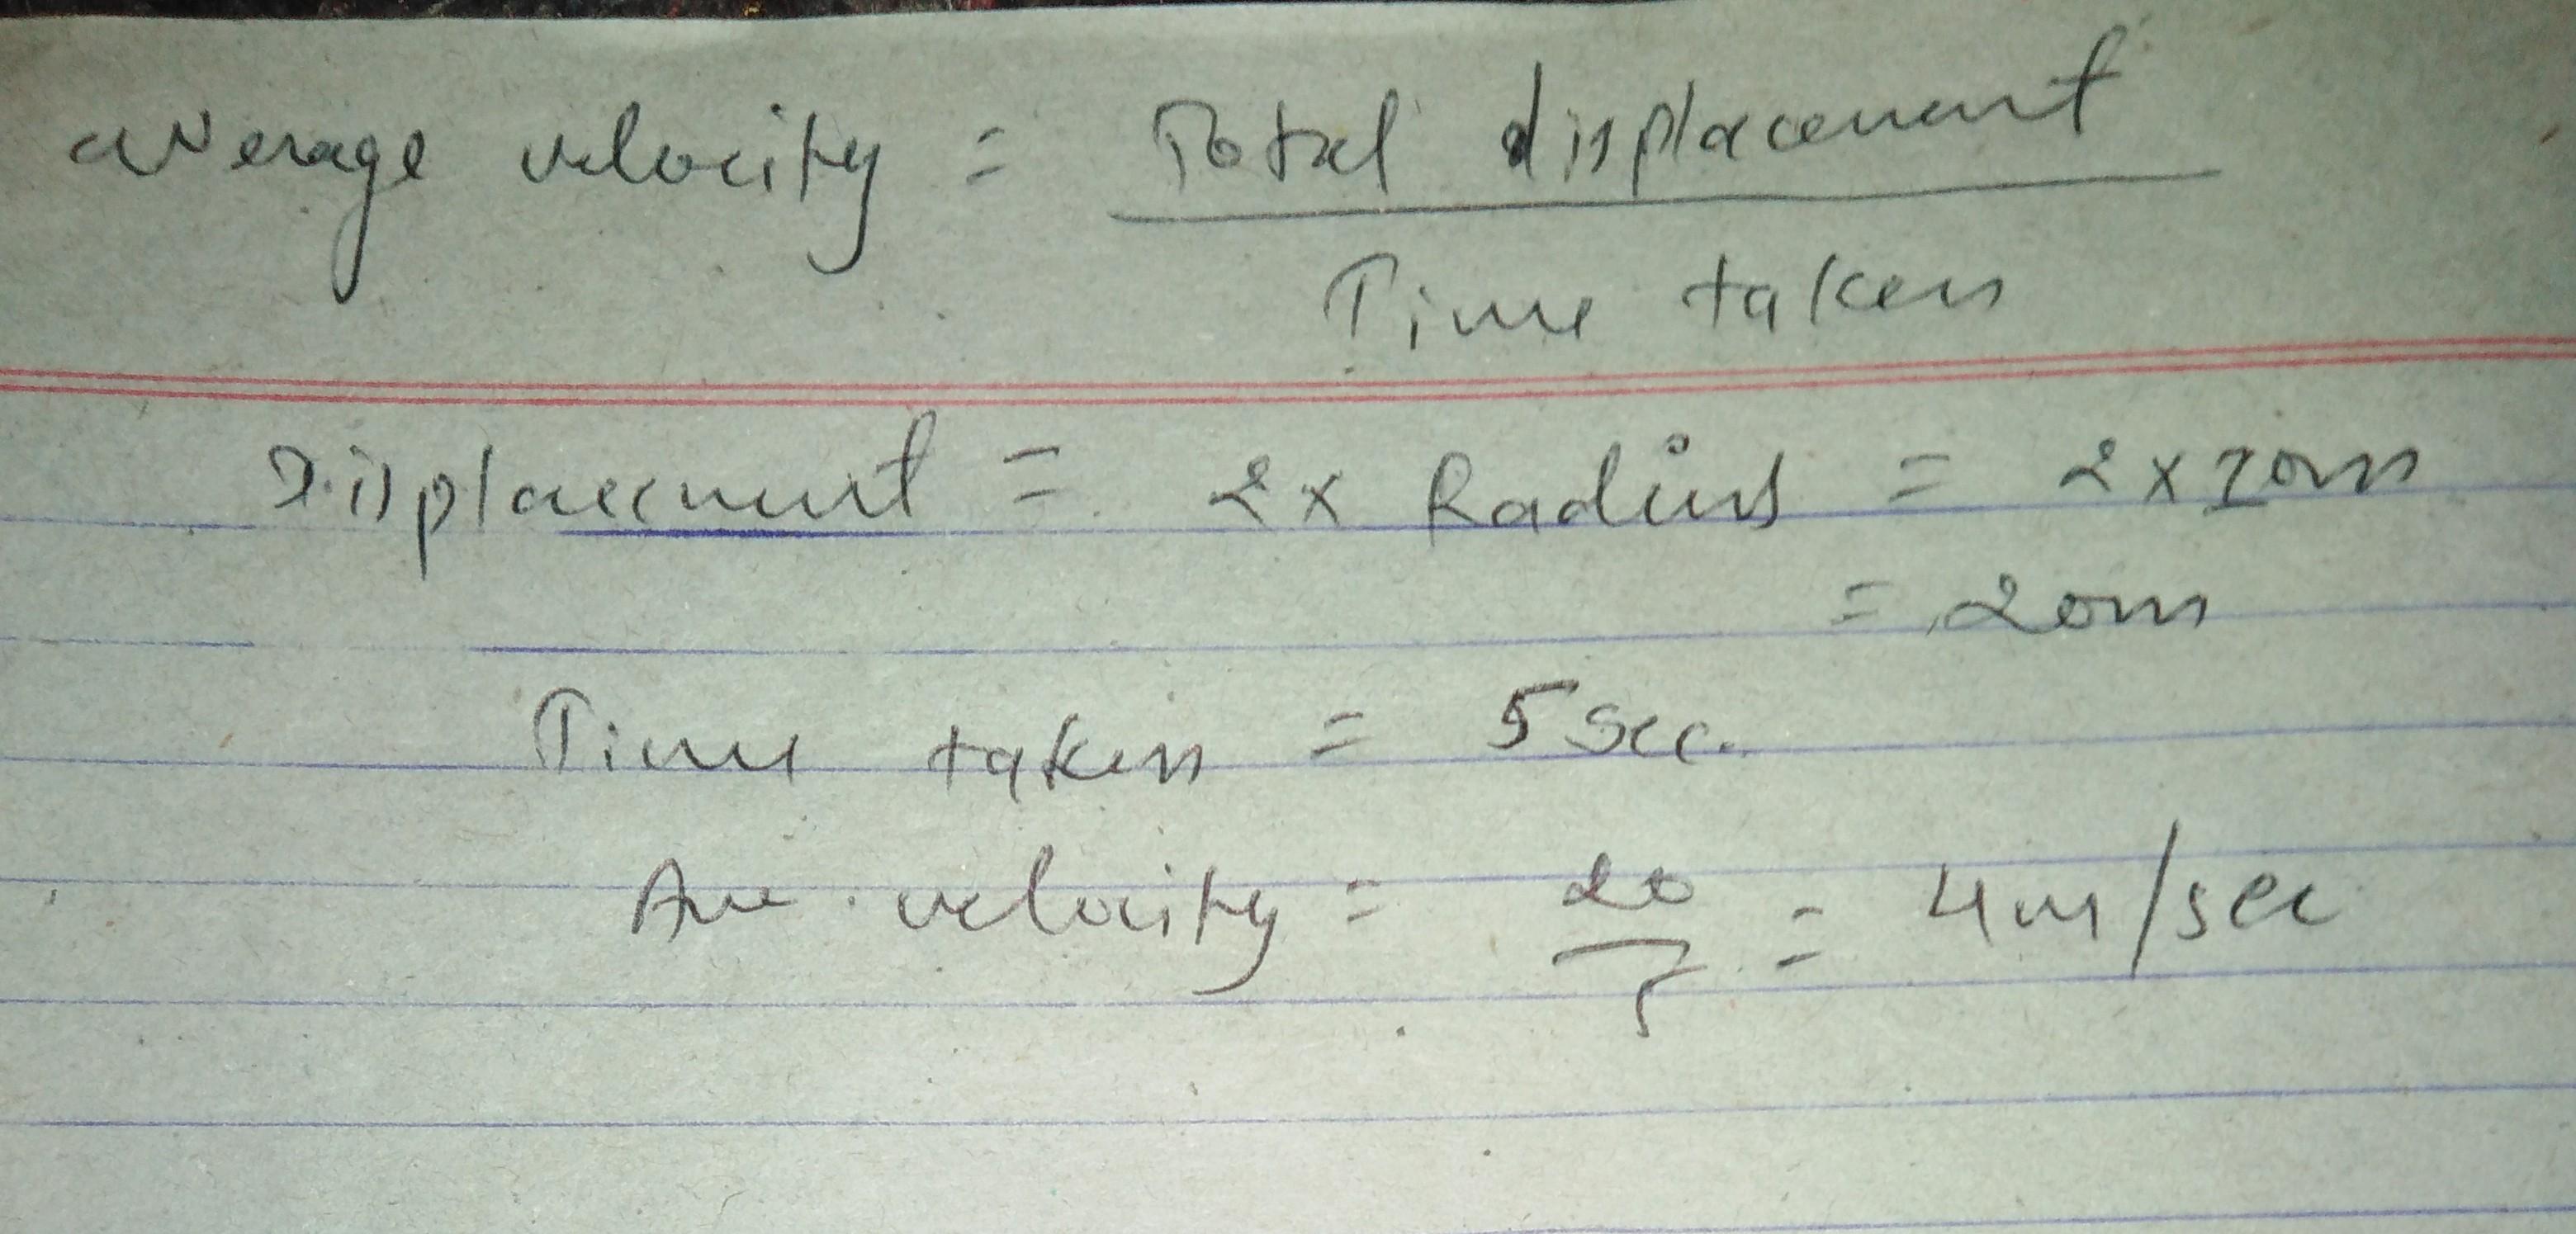 average velocity = Total displacement
Time taken
Displacement = 2x Radius = 2x10m
= 20m
Time taken = 5 sec.
Ave. velocity = 20/5 = 4m/sec